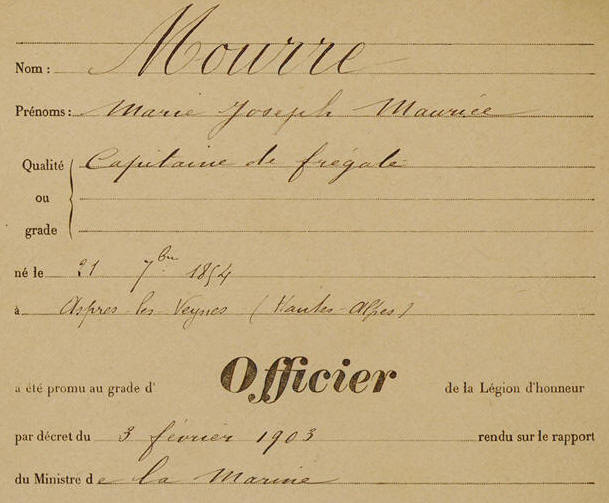 Nom : Mourre
Prénoms : Marie Joseph Maurice
Qualité Capitaine de frégate
ou
grade
né le 21 7bre 1854
à Aspres-les-Veynes (Hautes-Alpes)
a été promu au grade d' Officier de la Légion d'honneur
par décret du 3 février 1903 rendu sur le rapport
du Ministre de la Marine